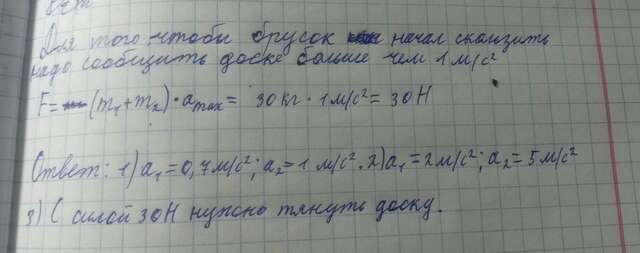 Для того, чтобы брусок начал скользить
надо сообщить доске больше чем 1 м/с²
F = (m₁+m₂)·a max = 30 кг · 1 м/с² = 30 Н
Ответ: 1) a₁ = 0,7 м/с²; a₂ = 1 м/с². 2) a₁ = 2 м/с²; a₂ = 5 м/с²
3) С силой 30 Н нужно тянуть доску.